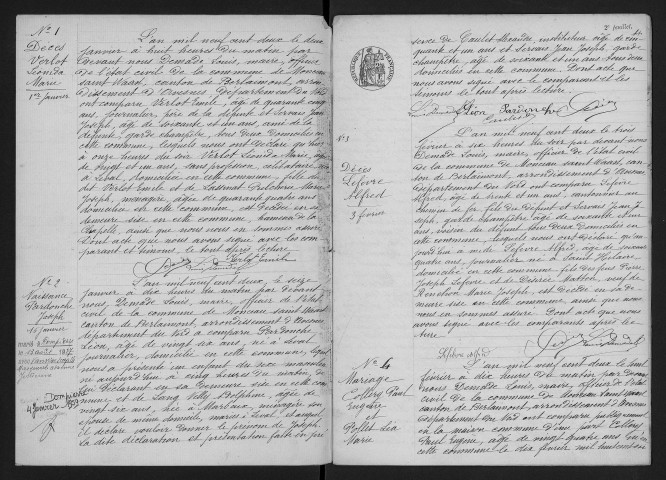 No 1
Décès
Verlot
Léonida
Marie
1er janvier
L'an mil neuf cent deux le deux
janvier à huit heures du matin par
devant nous Demade Louis, maire, officier
de l'état civil de la commune de Monceau
Saint Waast, canton de Berlaimont, arron-
dissement d'Avesnes, département du Nord
ont comparu Verlot Emile, âgé de quarante cinq
ans, journalier, père de la défunte et Servais Jean
Joseph, âgé de soixante et un ans, ami de la
défunte, garde champêtre, tous deux domiciliés en
cette commune, lesquels nous ont déclaré que hier
à onze heures du soir Verlot Léonida Marie, âgée
de vingt et un ans, sans profession, célibataire, née
à Leval, domiciliée en cette commune, fille du
dit Verlot Emile et de Pulchérie Marie
Joseph, ménagère, âgée de quarante quatre ans
domiciliée en cette commune, est décédée en sa
demeure sise en cette commune, hameau de la
Chapelle, ainsi que nous nous en sommes assuré.
Dont acte que nous avons signé avec le com-
parant et témoin le tout après lecture
Verlot Emile
No 2
Naissance
Pardonche
Joseph
16 janvier
L'an mil neuf cent deux le seize
janvier à dix heures du matin par devant
nous, Demade Louis, maire, officier de l'état
civil de la commune de Monceau Saint Waast
canton de Berlaimont, arrondissement d'Avesnes
département du Nord a comparu Pardonche
Léon, âgé de vingt six ans, né à Leval,
journalier, domicilié en cette commune, lequel
nous a présenté un enfant du sexe masculin
né aujourd'hui à cinq heures du matin, de
lui déclarant en sa demeure sise en cette com-
mune et de Sang Nelly Delphine, âgée de
vingt six ans, née à Marbaix, ménagère son
épouse de même domicile, mariés à Leval, et auquel
il déclare vouloir donner le prénom de Joseph,
la dite déclaration et présentation faite en pré
2e feuillet
sence de Caulet Alexandre, instituteur, âgé de cin-
quante et un ans et Servais Jean Joseph, garde
champêtre, âgé de soixante et un ans, tous deux
domiciliés en cette commune. Dont acte que
nous avons signé avec le comparant et les
témoins le tout après lecture
Léon Pardonche
No 3
Décès
Lefevre
Alfred
3 février
L'an mil neuf cent deux le trois
février à six heures du soir par devant nous
Demade Louis, maire, officier de l'état civil
de la commune de Monceau Saint Waast, can-
ton de Berlaimont, arrondissement d'Avesnes
département du Nord ont comparu Lefevre
Alfred, âgé de trente et un ans, cantonnier au
chemin de fer, fils du défunt et Servais Jean Jo-
seph, garde champêtre, âgé de soixante et un
ans, voisin du défunt tous deux domiciliés en
cette commune, lesquels nous ont déclaré qu'au-
jourd'hui à midi Lefevre Alfred, âgé de soixante
quatre ans, journalier, né à Saint Hilaire
domicilié en cette commune, fils des feus Pierre
Joseph Lefevre et de Désirée Machon, veuf de
Marie Joseph est décédé en sa de-
meure sise en cette commune, ainsi que nous
nous en sommes assuré. Dont acte que nous
avons signé avec les comparants après lec-
ture
Lefebvre Alfred
No 4
Mariage
Collery Paul
Eugène
&
Pollet Léa
Marie
L'an mil neuf cent deux le huit
février à dix heures du matin par devant
nous Demade Louis, maire, officier de l'état
civil de la commune de Monceau Saint Waast
canton de Berlaimont, arrondissement d'Avesnes
département du Nord ont comparu publiquement
en la maison commune d'une part Collery
Paul Eugène, âgé de vingt quatre ans, né en
cette commune le dix février mil huit cent soi